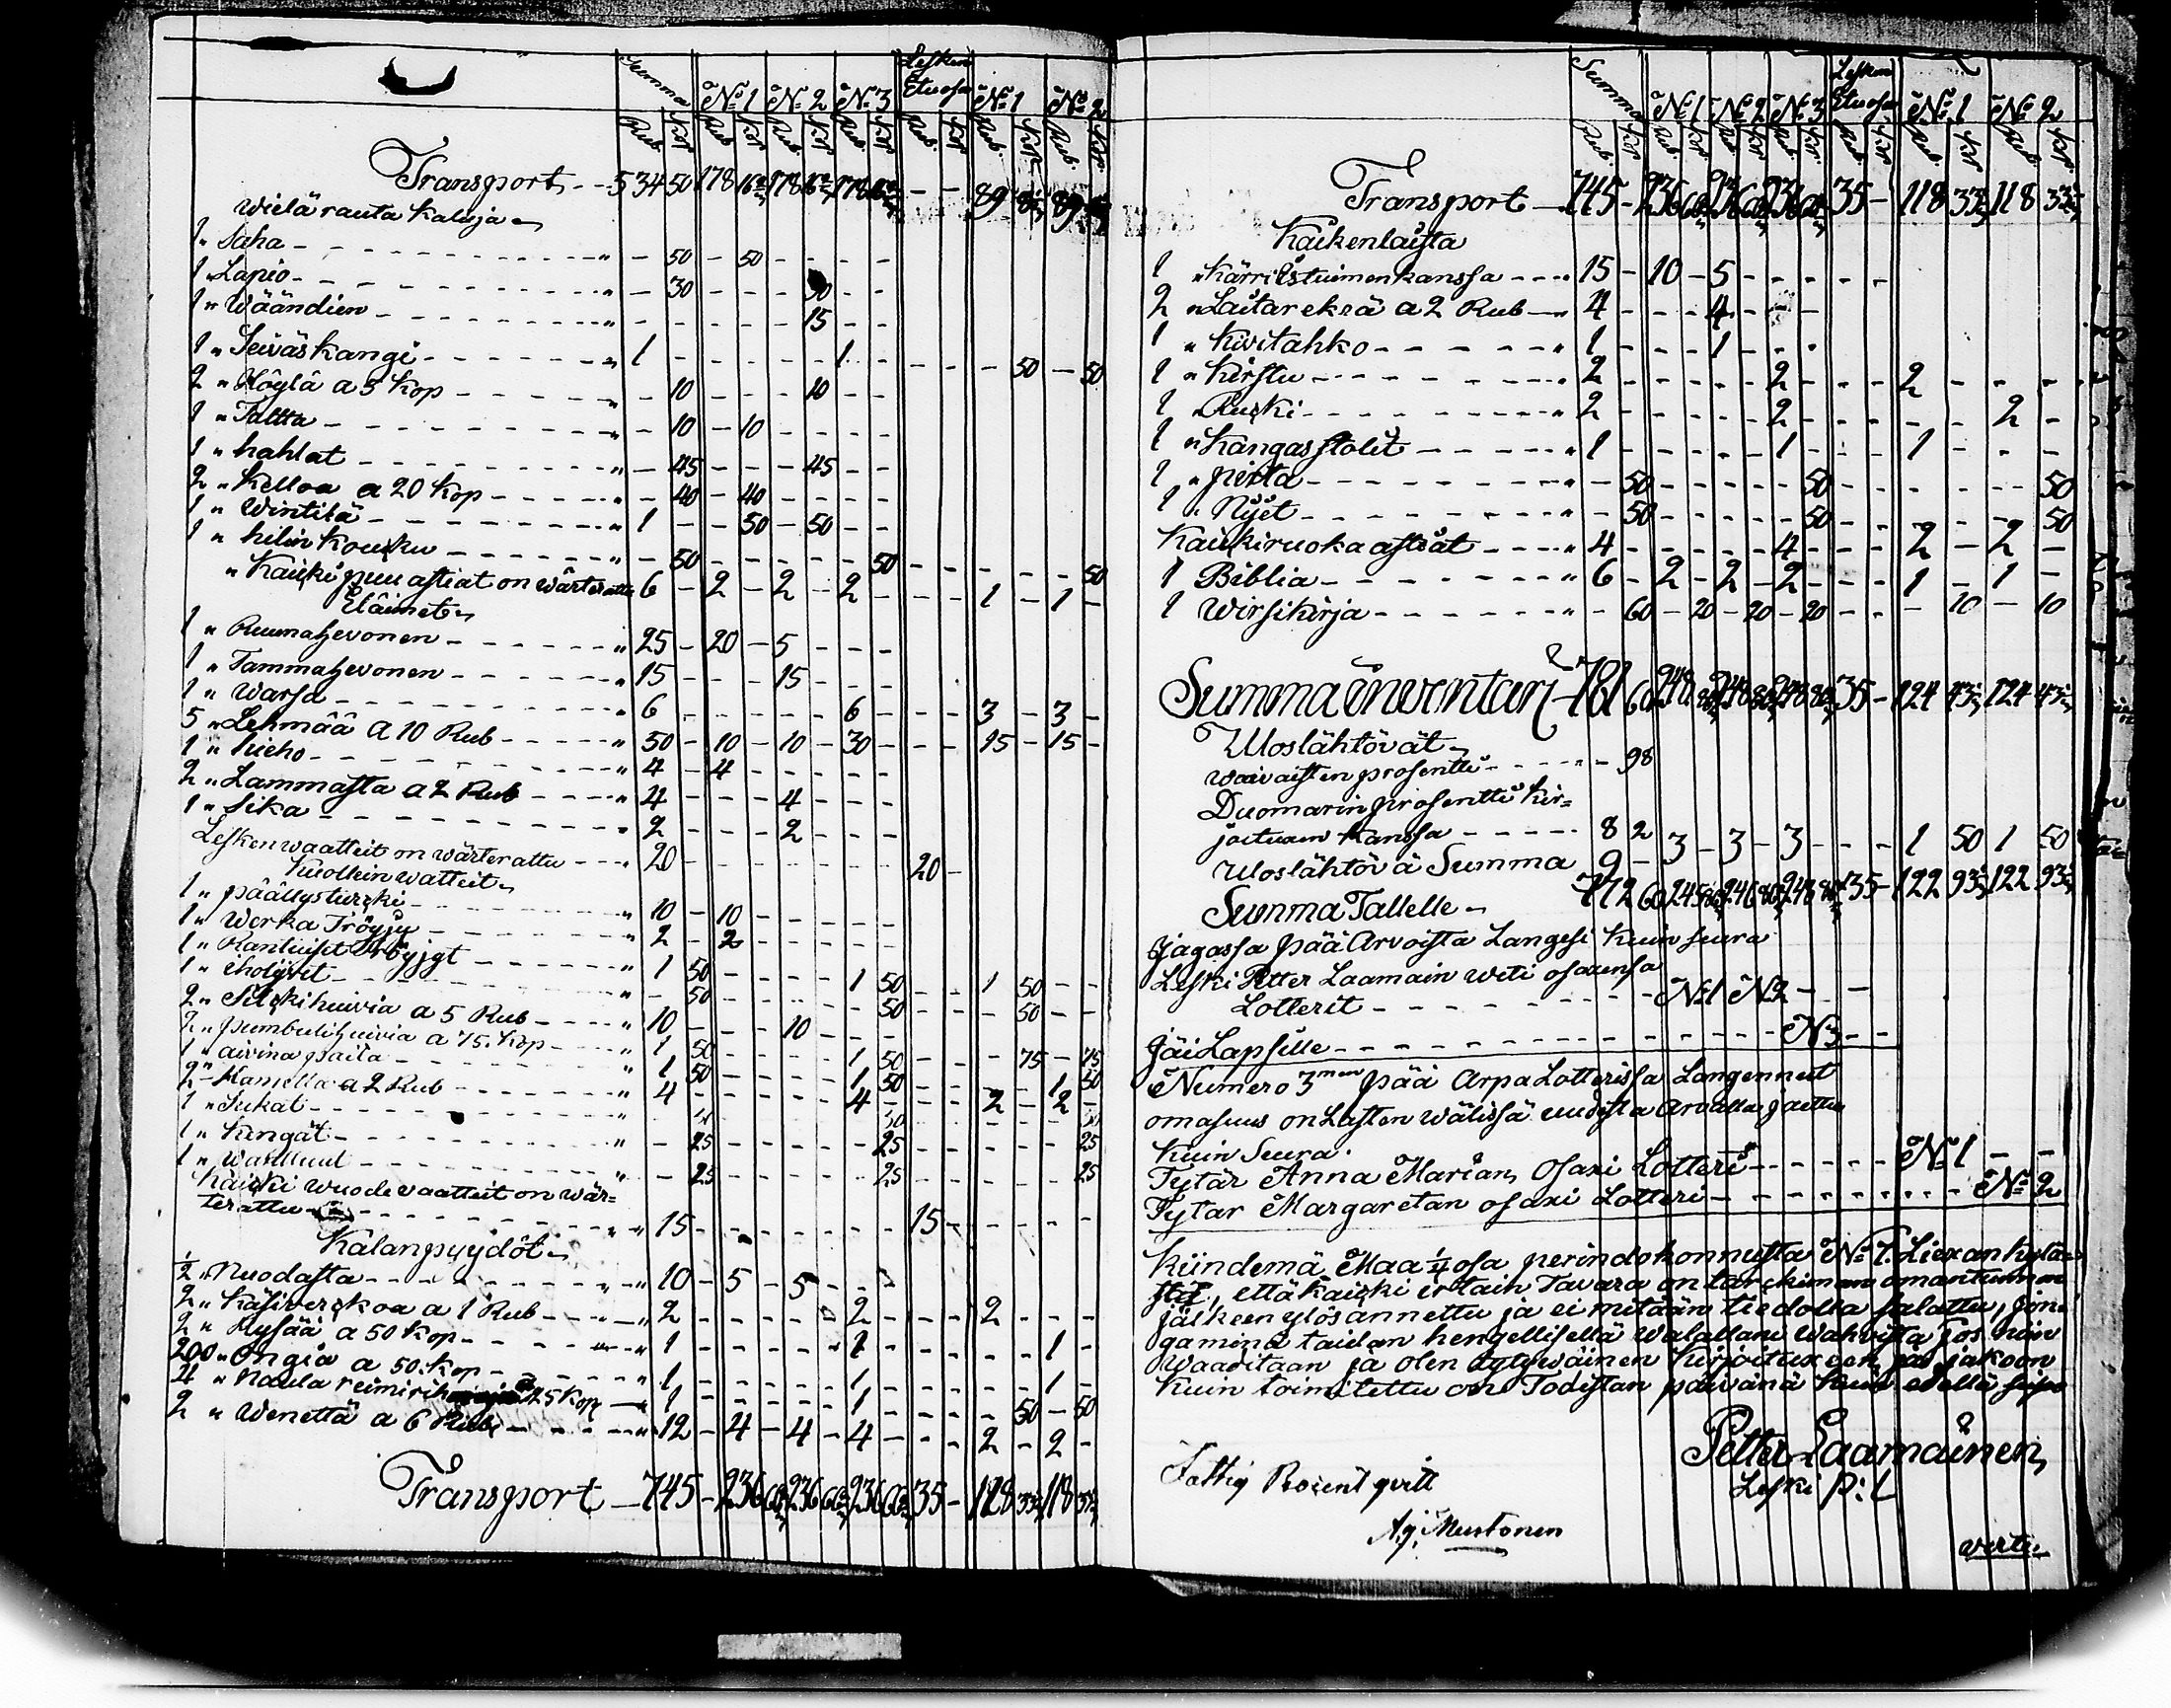 Summa N:o 1 N:o 2 N:o 3 Lesken Etuosa N:o 1 N:o 2
Rub. Kop Rub. Kop Rub. Kop Rub. Kop Rub. Kop Rub. Kop Rub. Kop
Transport 534 50 178 178 178 - - 89 89
wielä rauta kaluja
1 " Saha " - 50 - 50 - - - -
1 " Lapio " - 30 - - - 30 - -
1 " Wäändien " - - - - - 15 - -
1 " Seiväskangi " 1 - - - - - 1 - - - - 50 - 50
2 " Höylä a 5 Kop " - 10 - - - 10 - -
1 " Taltta " - 10 - 10 - - - -
1 " hahlat " - 45 - - - 45 - -
2 " Kelloa a 20 Kop " - 40 - 40 - - - -
1 " Wintilä " 1 - - 50 - 50 - -
1 " hilin koukku " - 50 - - - - - 50 - - - - - 50
" Kaicki puu astiat on wärterattu 6 - 2 - 2 - 2 - - - 1 - 1 -
Eläimet
1 " Ruunahevonen " 25 - 20 - 5 - - -
1 " Tammahevonen " 15 - - - 15 - - -
1 " Warsa " 6 - - - - - 6 - - - 3 - 3 -
5 " Lehmää a 10 Rub " 50 - 10 - 10 - 30 - - - 15 - 15 -
1 " hieho " 4 - 4 - - - - -
2 " Lammasta a 2 Rub " 4 - - - 4 - - -
1 " Sika " 2 - - - 2 - - -
Lesken waatteit on wärterattu " 20 - - - - - - - 20 -
Kuollein watteit
1 " päällysturcki " 10 - 10 - - - - -
1 " Werka Tröyjy " 2 - 2 - - - - -
1 " Ranluiset " 1 50 - - - - 1 50 - - 1 50 - -
1 " " - 50 - - - - - 50 - - - 50 - -
2 " Silckihuivia a 5 Rub " 10 - - - 10 - - -
2 " pumbulihuivia a 75. Kop " 1 50 - - - - 1 50 - - - 75 - 75
1 " aivina paita " 1 50 - - - - 1 50 - - - - 1 50
2 " Hametta a 2 Rub " 4 - - - - - 4 - - - 2 - 2 -
1 " Sukat "
1 " Kengät " - 25 - - - - - 25 - - - - - 25
1 " " - 25 - - - - - 25 - - - - - 25
Kaicki wuodevaatteit on wär=
terattu " 15 - - - - - - - 15 - - - - -
Kalanpyydöt
1/2 " Nuodasta " 10 - 5 - 5 - - -
2 " Käsiverckoa a 1 Rub " 2 - - - - - 2 - - - 2 - - -
2 " Rysää a 50 Kop " 1 - - - - - 1 - - - - - 1 -
200 " Ongia a 50. Kop " 1 - - - - - 1 - - - - - 1 -
4 " Naula 25 Kop " 1 - - - - - 1 - - - - 50 - 50
2 " Wenettä a 6 Rub " 12 - 4 - 4 - 4 - - - 2 - 2 -
Transport 745 - 236 236 236 35 - 118 118
Summa N:o 1 N:o 2 N:o 3 Lesken Etuosa N:o 1 N:o 2
Rub. Kop Rub. Kop Rub. Kop Rub. Kop Rub. Kop Rub. Kop Rub. Kop
Transport 745 - 236 236 236 35 - 118 118
Kaikenlaista
1 " Kärri Istuimen kanssa " 15 - 10 - 5 - - - - -
2 " Laitarekeä a 2 Rub " 4 - - - 4 - - -
1 " Kivitahko " 1 - - - 1 - - -
1 " Kirstu " 2 - - - - - 2 - - - 2 - - -
1 " Rucki " 2 - - - - - 2 - - - - - 2 -
1 " Kangasstolit " 1 - - - - - 1 - - - 1 - - -
1 " pirta " - 50 - - - - - 50 - - - - - 50
1 " Nijet " - 50 - - - - - 50 - - - - - 50
Kaickiruoka astiat " 4 - - - - - 4 - - - 2 - 2 -
1 Biblia " 6 - 2 - 2 - 2 - - - 1 - 1 -
1 Wirsikirja " - 60 - 20 - 20 - 20 - - - 10 - 10
Summa inventari 781 60 248 248 248 35 - 124 124
Uloslähtövät
waivaisten prosentti - 98
Duomarin prosentti kir=
joituxen kanssa 8 2 3 - 3 - 3 - - - 1 50 1 50
Uloslähtövä Summa 9 -
Summa Tallelle 772 60 245 245 245 35 - 122 122
Jagassa pää Arvoista Langesi kuin seura
Leski Petter Laamain weti osaxensa
Lotterit N:o 1 N:o 2 - -
Jäi Lapsille N:o 3 - -
Numero 3men pää Arpa Lotterissa Langennut
omasuus on Lasten wälissä uudesta Arvalla jaettu
kuin Seura.
Tytär Anna Marian, Osaxi Lotteri N:o 1 - -
Tytar Margaretan osaxi Lotteri N:o 2
Kiindemä Maa 1/4 osa perindokonnusta N:o 7. Liexan kyla=
stä, että kaicki erilain Tavara on tarckiman omantunnon
jälkeen ylösannettu ja ei mitään tiedolta salattu, jon=
gaminä taidan hengellisellä walallani wahvista jos niin
waaditaan ja olen tytywäinen kirjoituxeen ja jakoon
kuin toimitettu on Todistan päivänä kuin edellä
Petter Laamainen,
Leski P: L
Fattig Procent qvitt
A.g. Mustonen
verte.